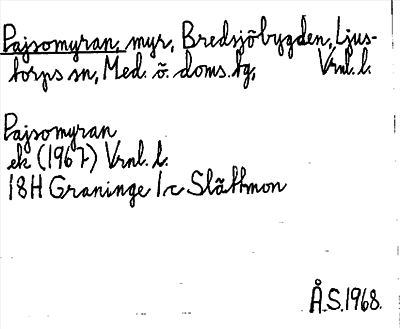 Pajsomyran, myr, Bredsjöbygden, Ljus-
torps sn, Med. ö. doms.tg, Vrnl. l.
Pajsomyran
ek (1967) Vrnl. l.
18H Graninge 1c Slättmon
Å.S.1968.